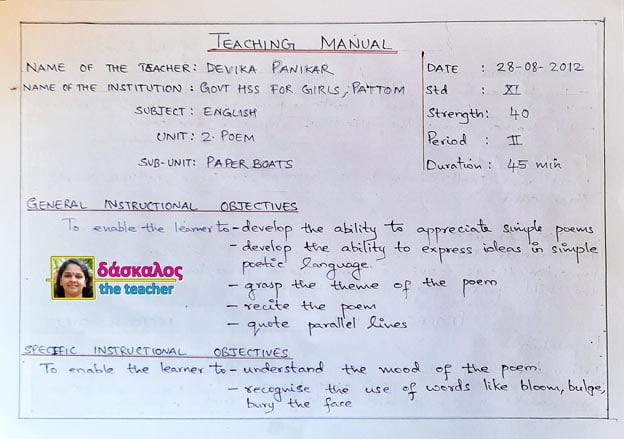 TEACHING MANUAL
NAME OF THE TEACHER: DEVIKA PANIKAR
NAME OF THE INSTITUTION: GOVT HSS FOR GIRLS, PATTOM
SUBJECT: ENGLISH
UNIT: 2. POEM
SUB-UNIT: PAPER BOATS
DATE : 28-08-2012
Std : XI
Strength: 40
Period : II
Duration: 45 min
GENERAL INSTRUCTIONAL OBJECTIVES
To enable the learner to - develop the ability to appreciate simple poems
- develop the ability to express ideas in simple
poetic language.
- grasp the theme of the poem
- recite the poem
- quote parallel lines
δάσκαλος
the teacher
SPECIFIC INSTRUCTIONAL OBJECTIVES
To enable the learner to - understand the mood of the poem.
- recognise the use of words like bloom, bulge,
bury the face